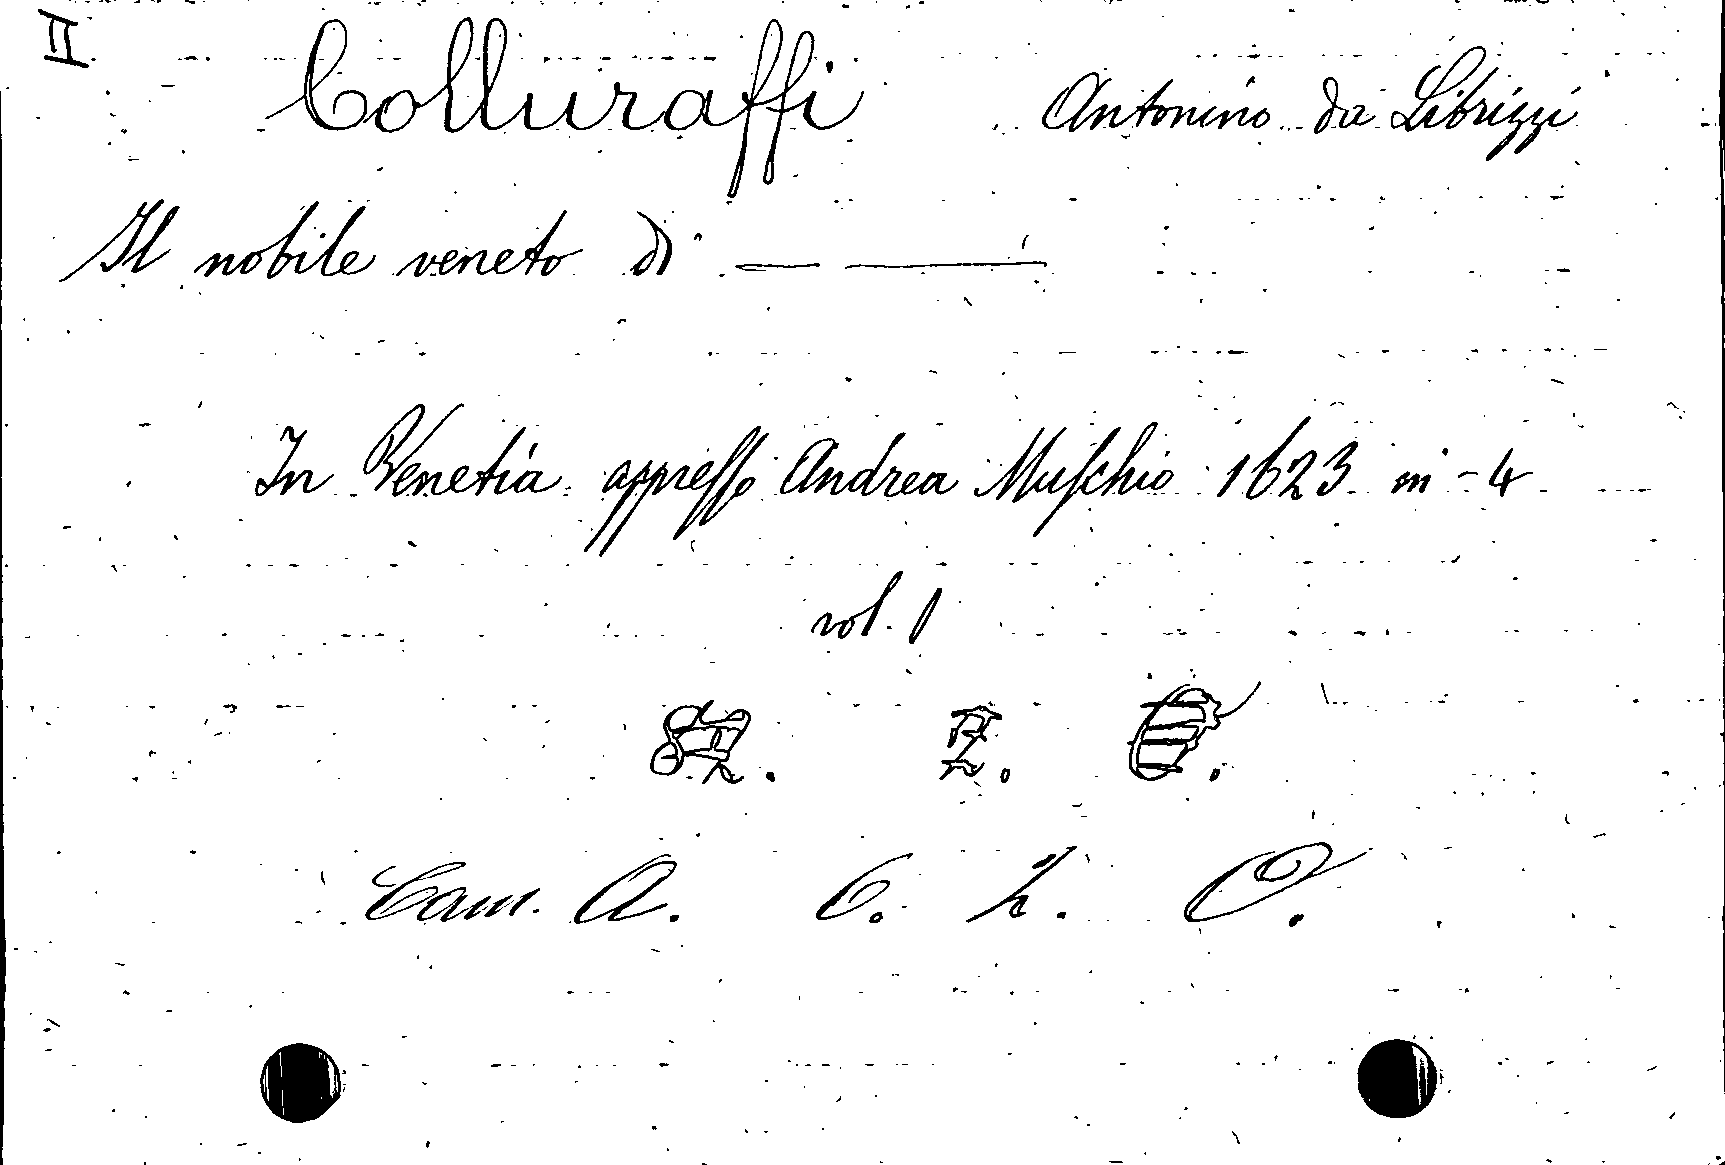 II
Colluraffi Antonino da Librizzi
Il nobile veneto di — ——
In Venetia appresso Andrea Muschio 1623 in-4
vol. 1
Cam. A. 6. h. O.